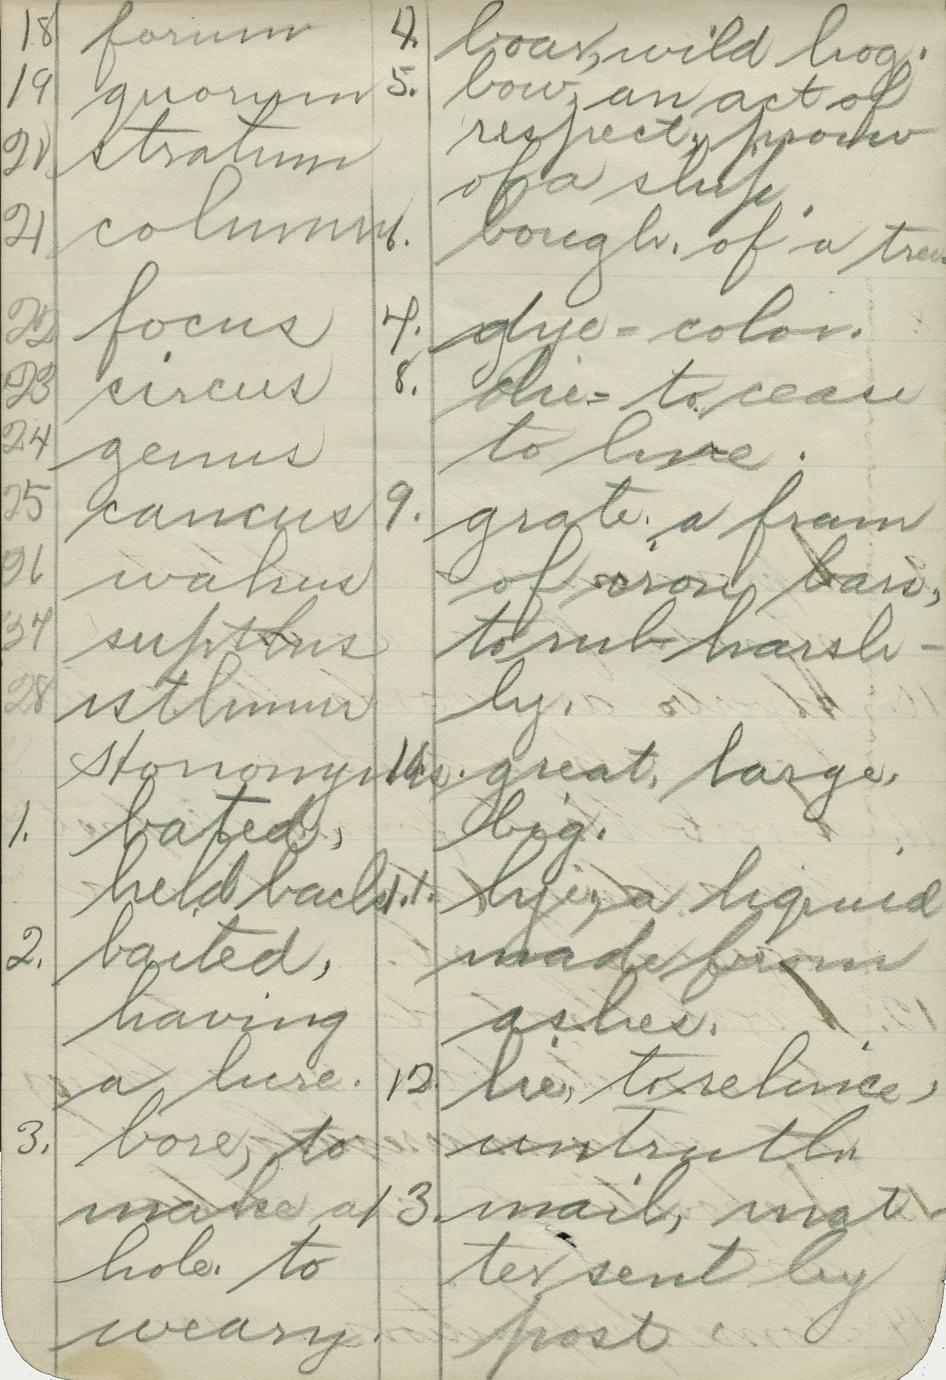 18 forum
19 quorum
20 stratum
21 column
22 focus
23 circus
24 genus
25 caucus
26 walrus
27
28 isthmus
1. bated,
held back
2. baited,
having
a lure.
3. bore, to
make a
hole. to
weary.
4. boar, wild hog.
5. bow, an act of
respect, prow
of a ship.
6. bough. of a tree
7. dye = color.
8. die = to cease
to live.
9. grate. a fram
of iron bars,
to rub harsh-
ly.
great, large,
big.
11. lye, a liquid
made from
ashes.
12. lie,
untruth
13. mail, mat-
ter sent by
post